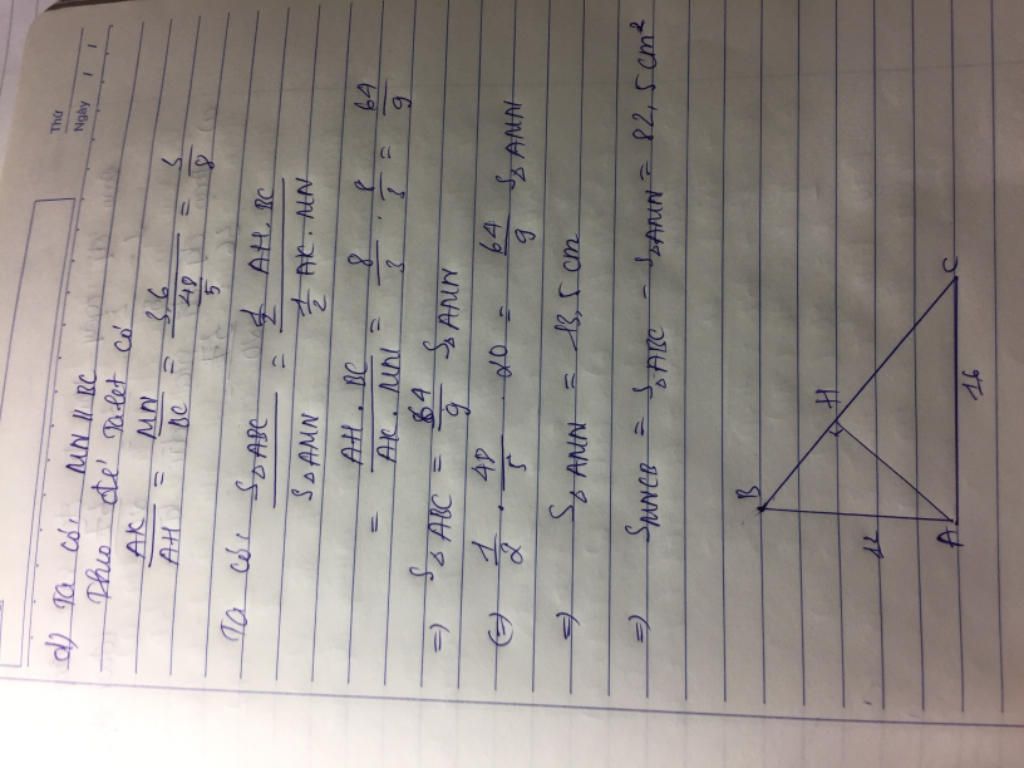 Thứ
Ngày
d) Ta có: MN // BC
Theo đlé Talet có
AK/AH = MN/BC = 3,6/(48/5) = 3/8
Ta có: S△ABC/S△AMN = (1/2 AH.BC)/(1/2 AK.MN)
= AH.BC/AK.MN = 8/3 . 8/3 = 64/9
=) S△ABC = 64/9 S△AMN
(=) 1/2 . 48/5 . 20 = 64/9 S△AMN
=) S△AMN = 13,5 cm
=) SMNCB = S△ABC - S△AMN = 82,5 cm²
B
H
12
A
16
C